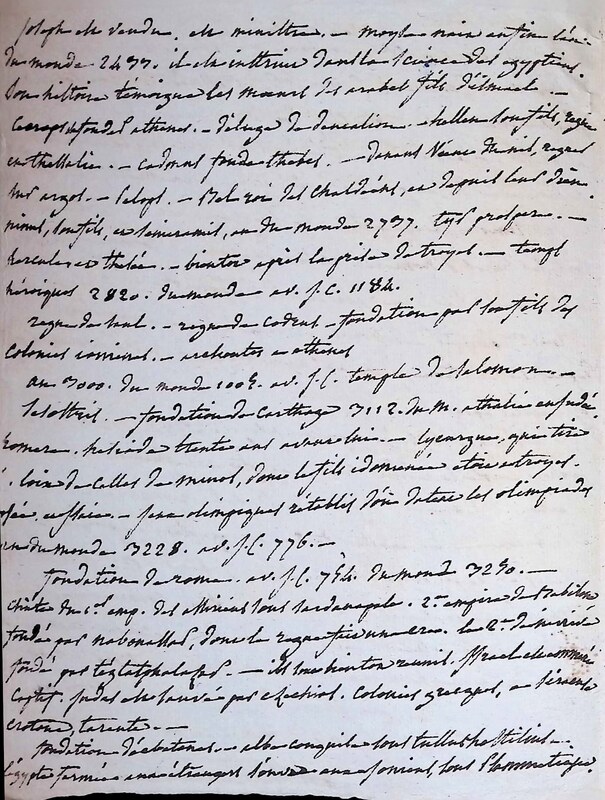 joseph est vendu, est ministre. – moyse nait enfin l'an
du monde 2433. il est instruit dans la science des egyptiens.
son histoire témoigne les mœurs des arabes fils d'ismael. –
Cecrops fonde athenes. – déluge de deucalion. – hellen son fils, regne
en thessalie. – cadmus fonde thebes. – danaus regne
sur argos. – Pelops. – Bel roi des Chaldéens, et depuis
ninus, son fils, et semiramis, an du monde 2737. tyr prospere. –
hercule et thesée. – bientot après la prise de troyes. – temps
héroiques 2820. du monde av. J.C. 1184.
regne de saul. – regne de codrus – fondation par son fils des
Colonies ioniennes. – archontes a athenes
an 3000. du monde 1004. av. J.C. temple de Salomon. –
– fondation de carthage 3112. du M. athalie en judée.
homere. hesiode trente ans avant lui. – lycurgue, qui tire
loix de celles de minos, dont le fils idomenée etoit a troyes.
– jeux olimpiques retablis d'où datent les olimpiades
an du monde 3228. av. J.C. 776. –
fondation de rome. av. J.C. 754. du monde 3250. –
chute du 1er emp. des assiriens sous sardanapale. 2e empire de Babilone
fondé par nabonassar, dont le regne fait une ere. le 2e de ninive
fondé par teglatphalasar. – ils sont bientot reunis. Israel est emmené
Captif. Judas est sauvé par ezechias. Colonies grecques, a siracuse
Crotone, tarente. –
fondation d'ecbatanes. – albe conquise sous tullus hostilius –
l'égypte fermée aux étrangers s'ouvre aux ioniens, sous Psammetique.